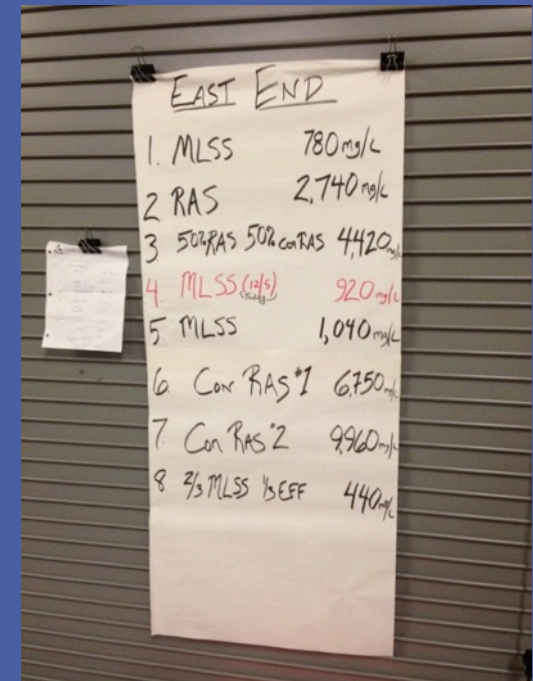 EAST END
1. MLSS 780 mg/L
2 RAS 2,740 mg/L
3 50% RAS 50% con RAS 4,420 mg/L
4. MLSS (12/5) 920 mg/L
Today
5 MLSS 1,040 mg/L
6. Con RAS #1 6,750 mg/L
7. Con RAS #2 9,960 mg/L
8 2/3 MLSS 1/3 EFF 440 mg/L